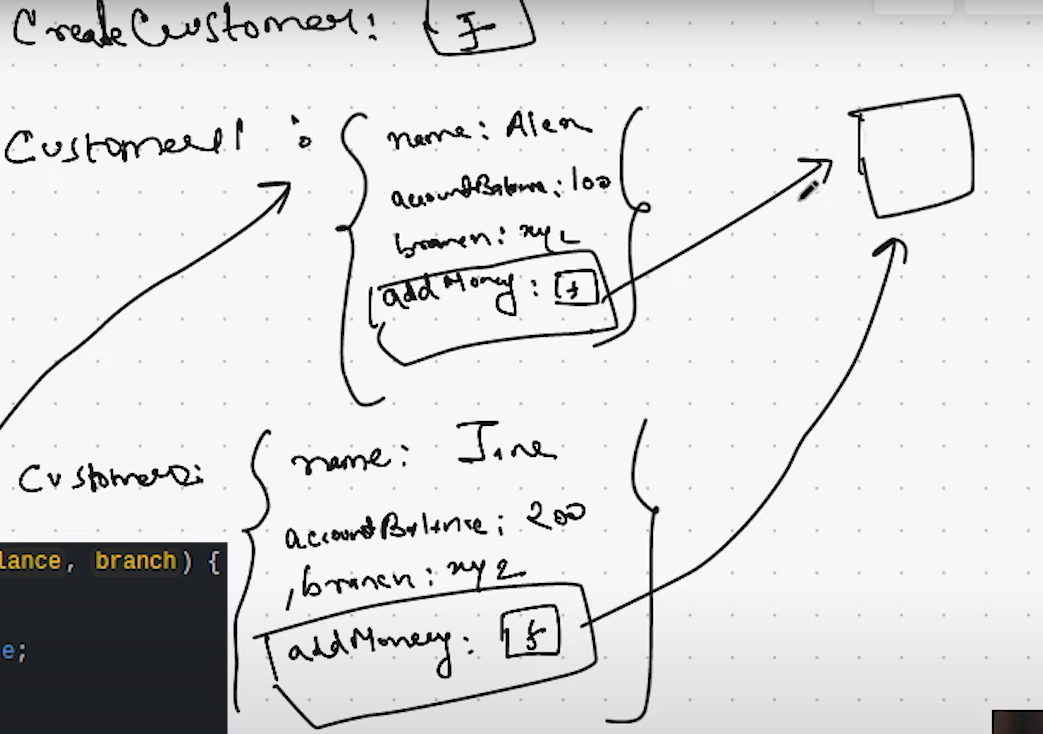 CreateCustomer: f
Customer1 :
name: Alex
accountBalance: 100
branch: xyz
addMoney: f
Customer2:
name: Jane
accountBalance: 200
,branch: xyz
addMoney: f
lance, branch) {
e;